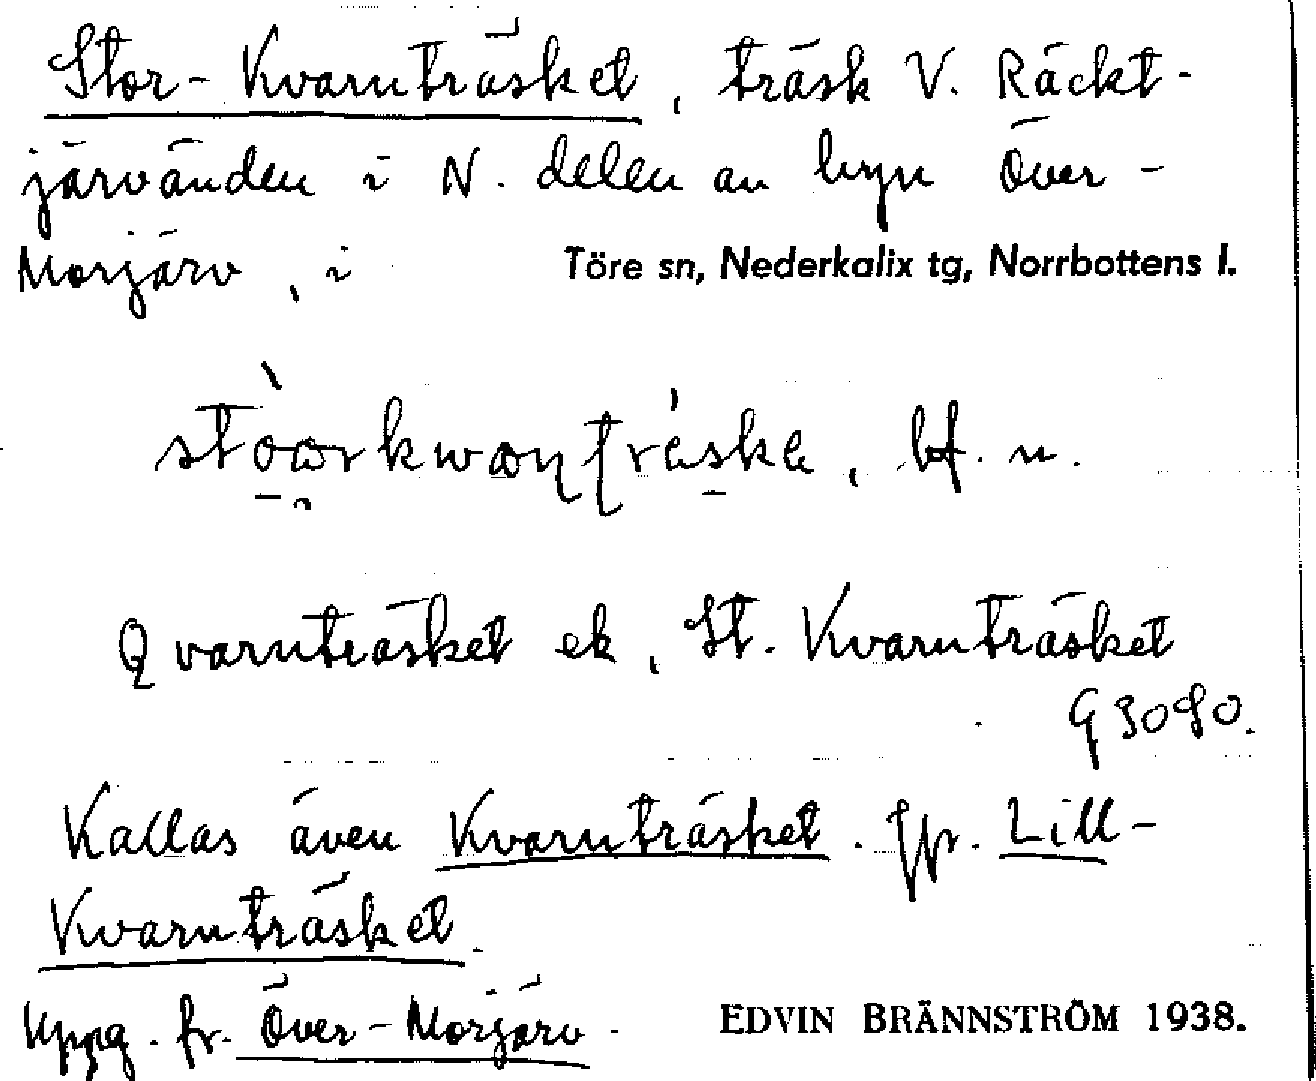 Stor-Kvarnträsket, träsk V. Räckt-
järvänden i N. delen av byn Över-
Morjärv, i Töre sn, Nederkalix tg, Norrbottens l.
bf. n.
Qvarnträsket ek, St. Kvarnträsket
G 3090.
Kallas även Kvarnträsket. Jfr. Lill-
Kvarnträsket.
Uppg. fr. Över-Morjärv.
EDVIN BRÄNNSTRÖM 1938.